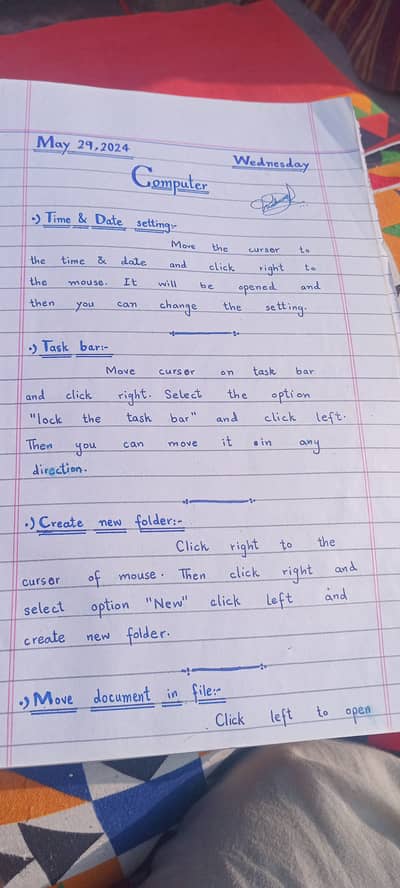 May 29, 2024
Wednesday
Computer
•) Time & Date setting:-
Move the cursor to
the time & date and click right to
the mouse. It will be opened and
then you can change the setting.
•) Task bar:-
Move cursor on task bar
and click right. Select the option
"lock the task bar" and click left.
Then you can move it in any
direction.
•) Create new folder:-
Click right to the
curser of mouse. Then click right and
select option "New" click left and
create new folder.
•) Move document in file:-
Click left to open